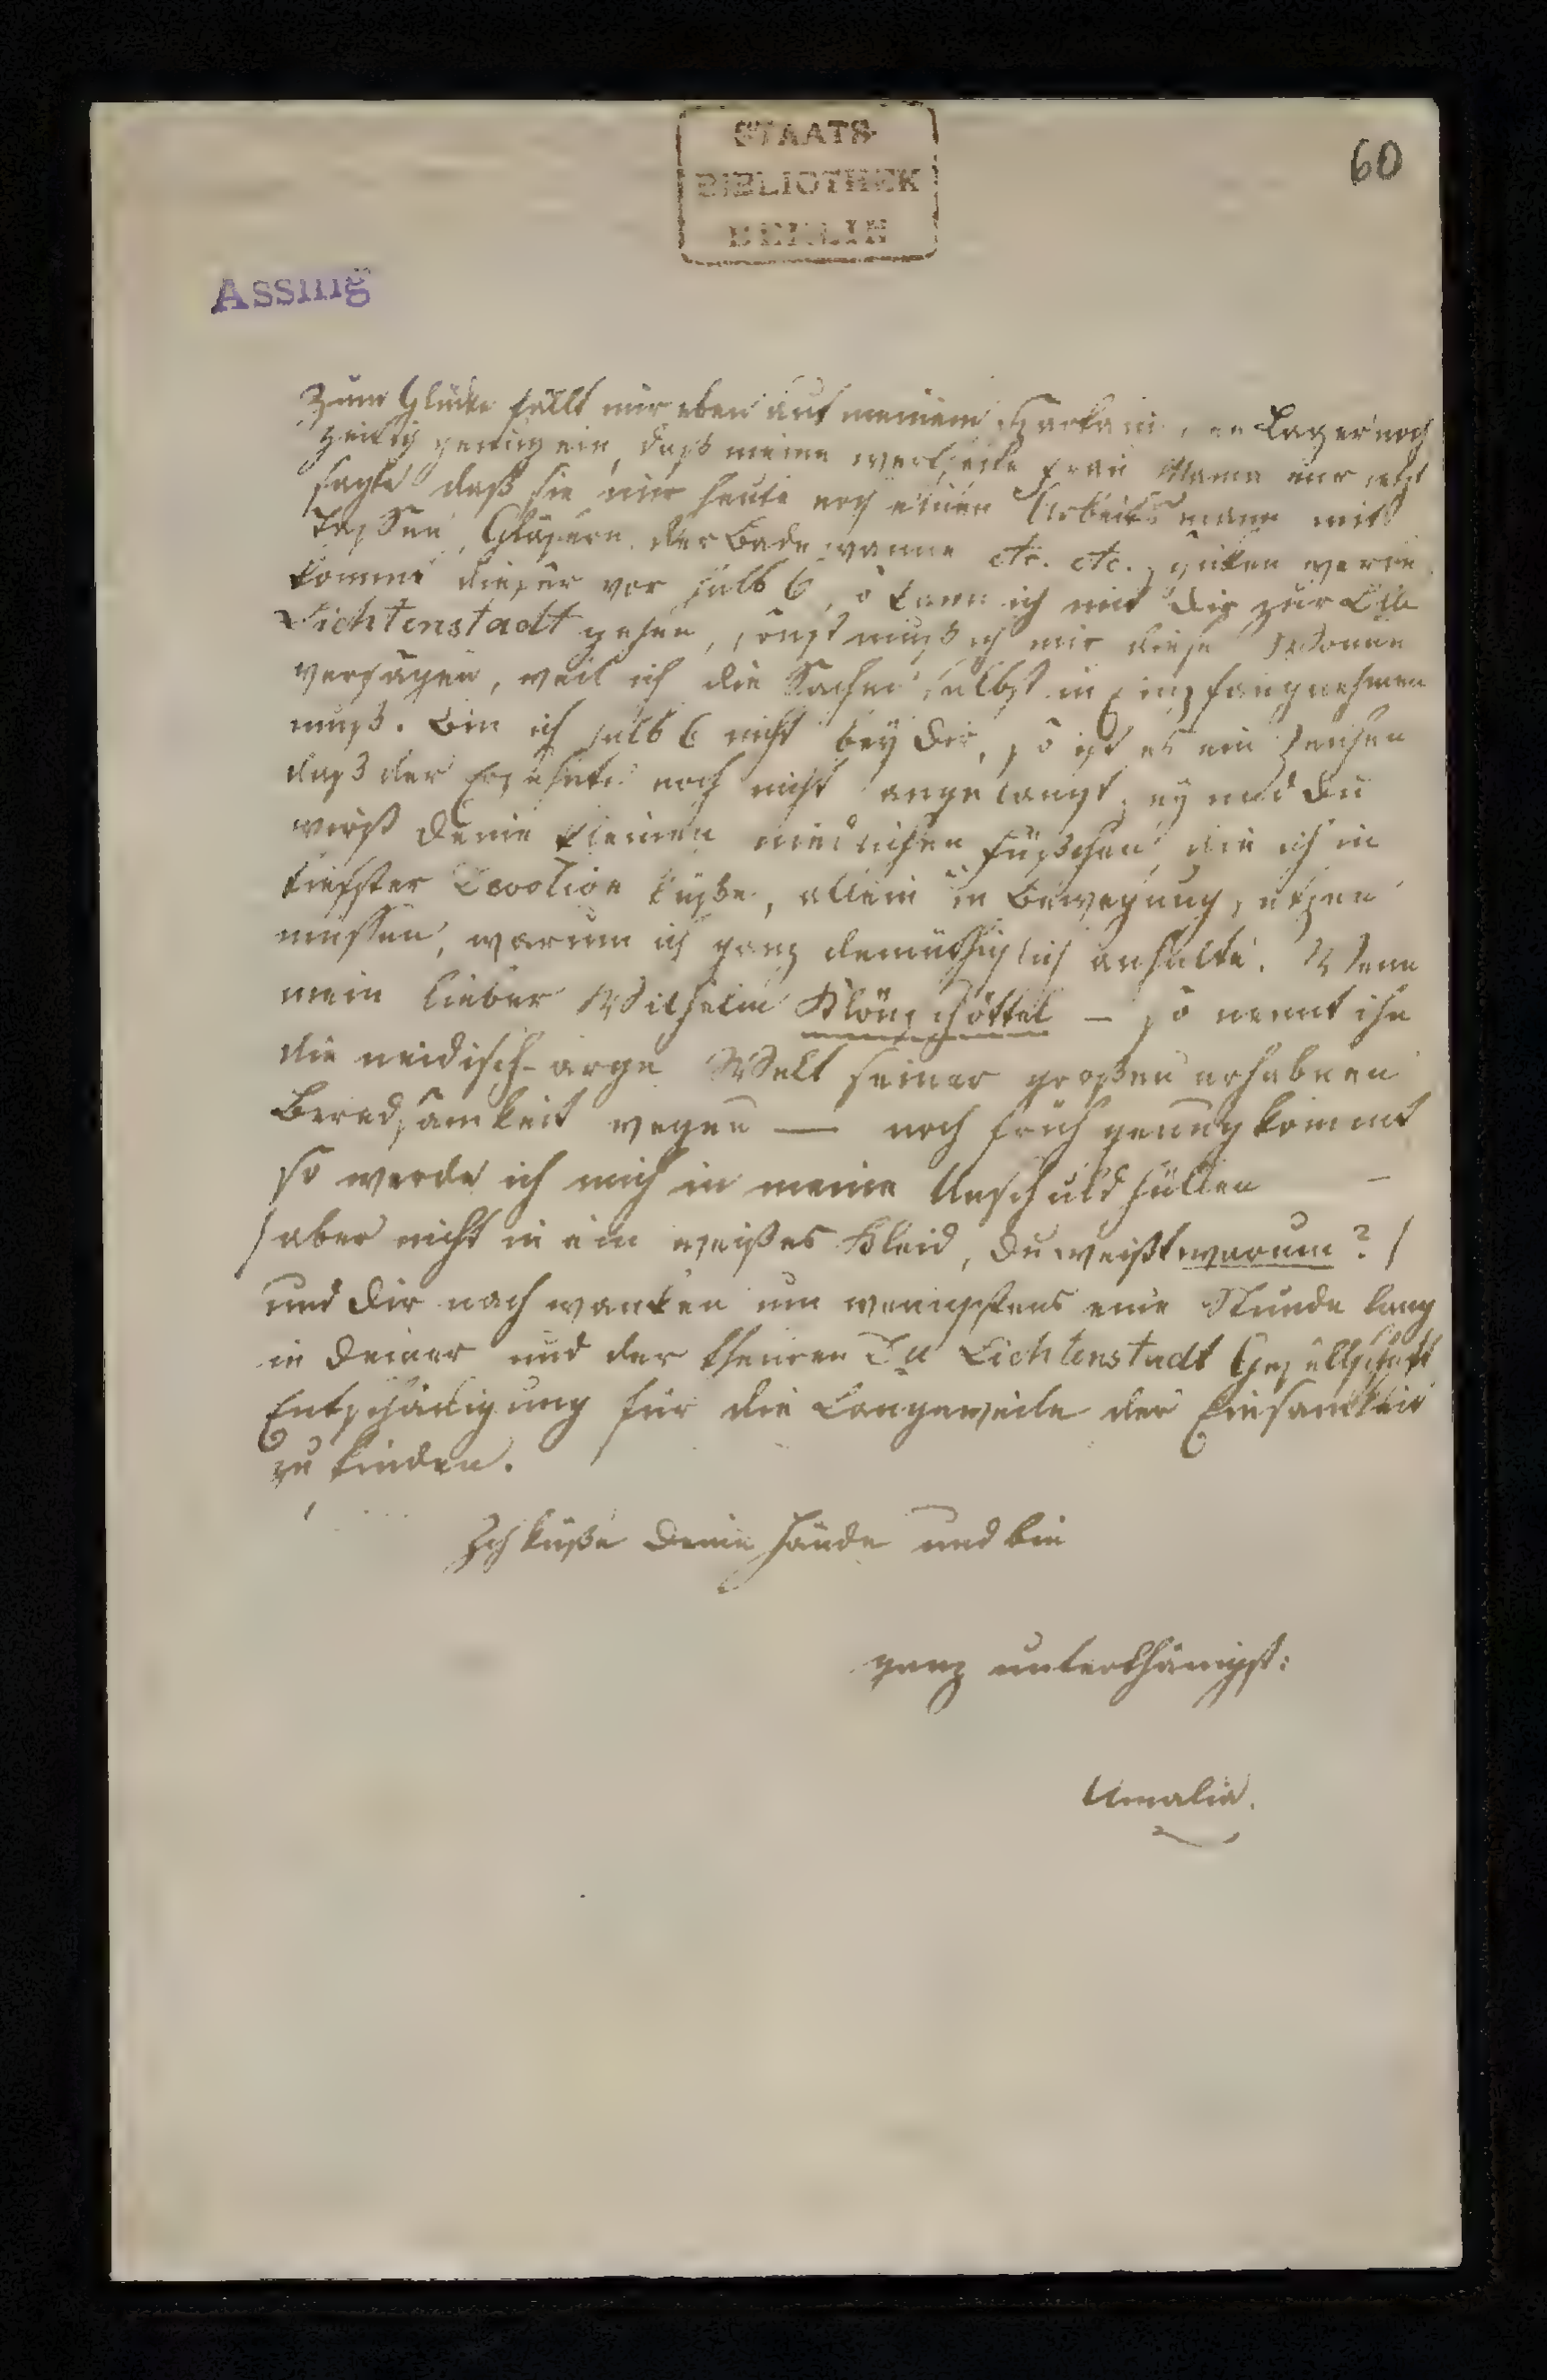 STAATS-
BIBLIOTHEK
BERLIN
60
Assing
Zum Glücke fällt mir eben auf meinem Lager noch
zeitig genug ein, daß meine Frau Mama mir jetzt
sagte daß sie mir heute noch einen Arbeitsmann mit
Tassen, Gläsern, der Badewanne etc. etc. schicken werde
komme dieser vor halb 6, so kann ich mit Dir zur
Lichtenstadt gehen, sonst muß ich mir diese Wonne
versagen, weil ich die Sachen selbst in Empfang nehmen
muß. Bin ich halb 6 nicht bey Dir, so ist es ein Zeichen
daß der Ersehnte noch nicht angelangt sey und Du
wirst Deine kleinen niedlichen Füßchen, die ich in
tiefster Devotion küße, allein in Bewegung setzen
müssen, warum ich ganz demüthiglich anhalte. Wenn
mein lieber Wilhelm – so nennt ihn
die neidisch-arge Welt seiner großen erhabnen
Beredsamkeit wegen — noch früh genug kommt
so werde ich mich in meine Unschuld hüllen –
/ aber nicht in ein weißes Kleid, Du weißt warum? /
und Dir nach wanken um wenigstens eine Stunde lang
in Deiner und der theuren Lichtenstadt Gesellschaft
Entschädigung für die Langeweile der Einsamkeit
zu finden.
Ich küße Deine Hände und bin
ganz unterthänigst:
Amalia.